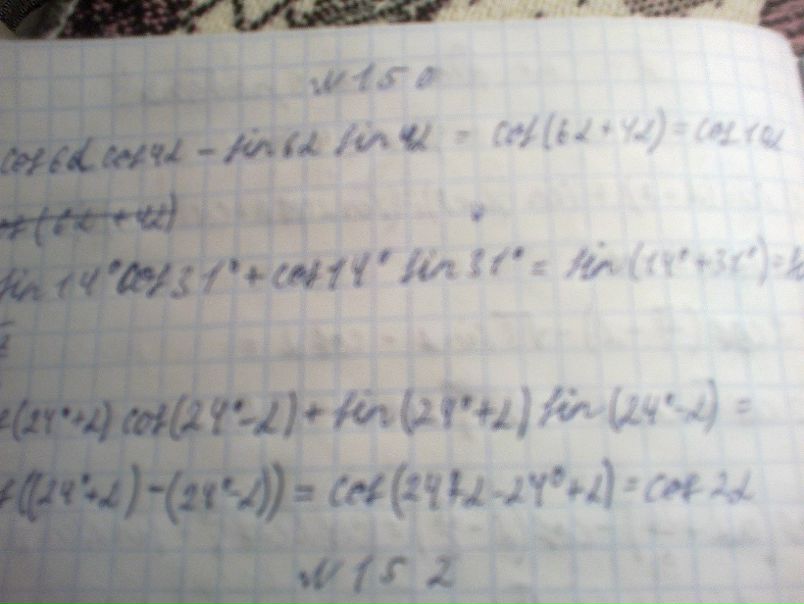 № 150
cos6α cos4α - sin6α sin4α = cos(6α+4α) = cos10α
(6α+4α)
sin14°cos31° + cos14° sin31° = sin(14°+31°) =
(24°+α) cos(24°-α) + sin(24°+α) sin(24°-α) =
((24°+α) - (24°-α)) = cos(24°+α-24°+α) = cos2α
№ 152